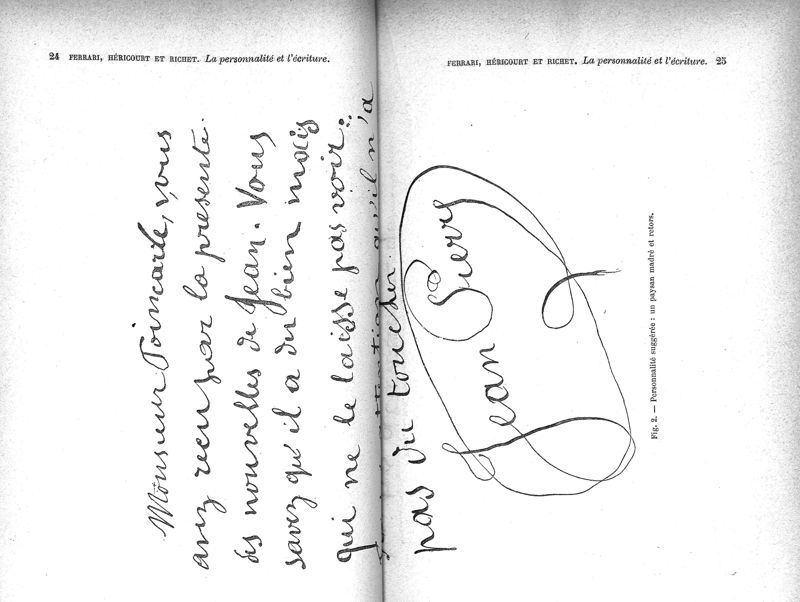 24 FERRARI, HÉRICOURT ET RICHET. La personnalité et l'écriture.
Monsieur Poincarte, vous
avez reçu par la présente
des nouvelles de Jean. Vous
savez qu'il a du bien mais
qui ne le laisse pas voir.
qu'il n'a
pas du toucher.
Jean Pierre
FERRARI, HÉRICOURT ET RICHET. La personnalité et l'écriture. 25
Fig. 2. — Personnalité suggérée : un paysan madré et retors.